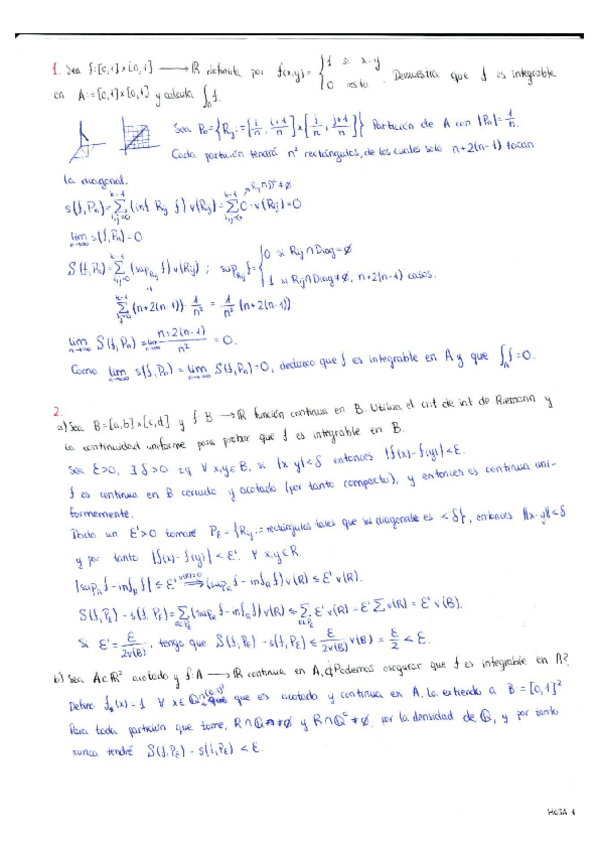 1. Sea f:[0,1]x[0,1] ⟶ ℝ definida por f(x,y) = { 1 si x=y
0 resto . Demuestra que f es integrable
en A:=[0,1]x[0,1] y calcula ∫_A f.
Sea Pn={Rij:=[i/n, i+1/n]x[j/n, j+1/n]} Partición de A con |Pn|=1/n.
Cada partición tendrá n² rectángulos, de los cuales solo n+2(n-1) tocan
la diagonal.
s(f,Pn)=∑(inf Rij f) v(Rij)=∑0·v(Rij)=0
lim s(f,Pn)=0
n→∞
S(f,Pn)=∑(sup Rij f) v(Rij) ; sup Rij f={ 0 si Rij∩Diag=∅
1 si Rij∩Diag≠∅, n+2(n-1) casos.
∑(n+2(n-1))·1/n² = 1/n² (n+2(n-1))
lim S(f,Pn)=lim n+2(n-1)/n² = 0.
Como lim s(f,Pn)=lim S(f,Pn)=0, deduzco que f es integrable en A y que ∫_A f=0.
2.
a) Sea B=[a,b]x[c,d] y f: B ⟶ ℝ función continua en B. Utiliza el crit de int de Riemann y
la continuidad uniforme para probar que f es integrable en B.
Sea ε>0, ∃δ>0 tq ∀x,y∈B, si |x-y|<δ entonces |f(x)-f(y)|<ε.
f es continua en B cerrado y acotado (por tanto compacto), y entonces es continua uni-
formemente.
Dado un ε'>0 tomaré Pε={Rij:=rectángulos tales que su diagonal es <δ}, entonces ||x-y||<δ
y por tanto |f(x)-f(y)|<ε'. ∀ x,y∈R.
|sup_R f-inf_R f| ≤ ε' ⟹ (sup_R f-inf_R f) v(R) ≤ ε' v(R).
S(f,Pε)-s(f,Pε)=∑(sup_R f-inf_R f) v(R) ≤ ∑ ε' v(R)=ε'∑v(R)=ε' v(B).
Si ε'=ε/2v(B), tengo que S(f,Pε)-s(f,Pε) ≤ ε/2v(B) v(B) = ε/2 < ε.
b) Sea A⊂ℝ² acotado y f:A ⟶ ℝ continua en A, ¿Podemos asegurar que f es integrable en A?
Defino f(x)=1 ∀ x∈ℚ que es acotada y continua en A. La extiendo a B=[0,1]²
Para toda partición que tome, R∩ℚ≠∅ y R∩ℚᶜ≠∅, por la densidad de ℚ, y por tanto
nunca tendré S(f,Pε)-s(f,Pε)<ε.
HOJA 1